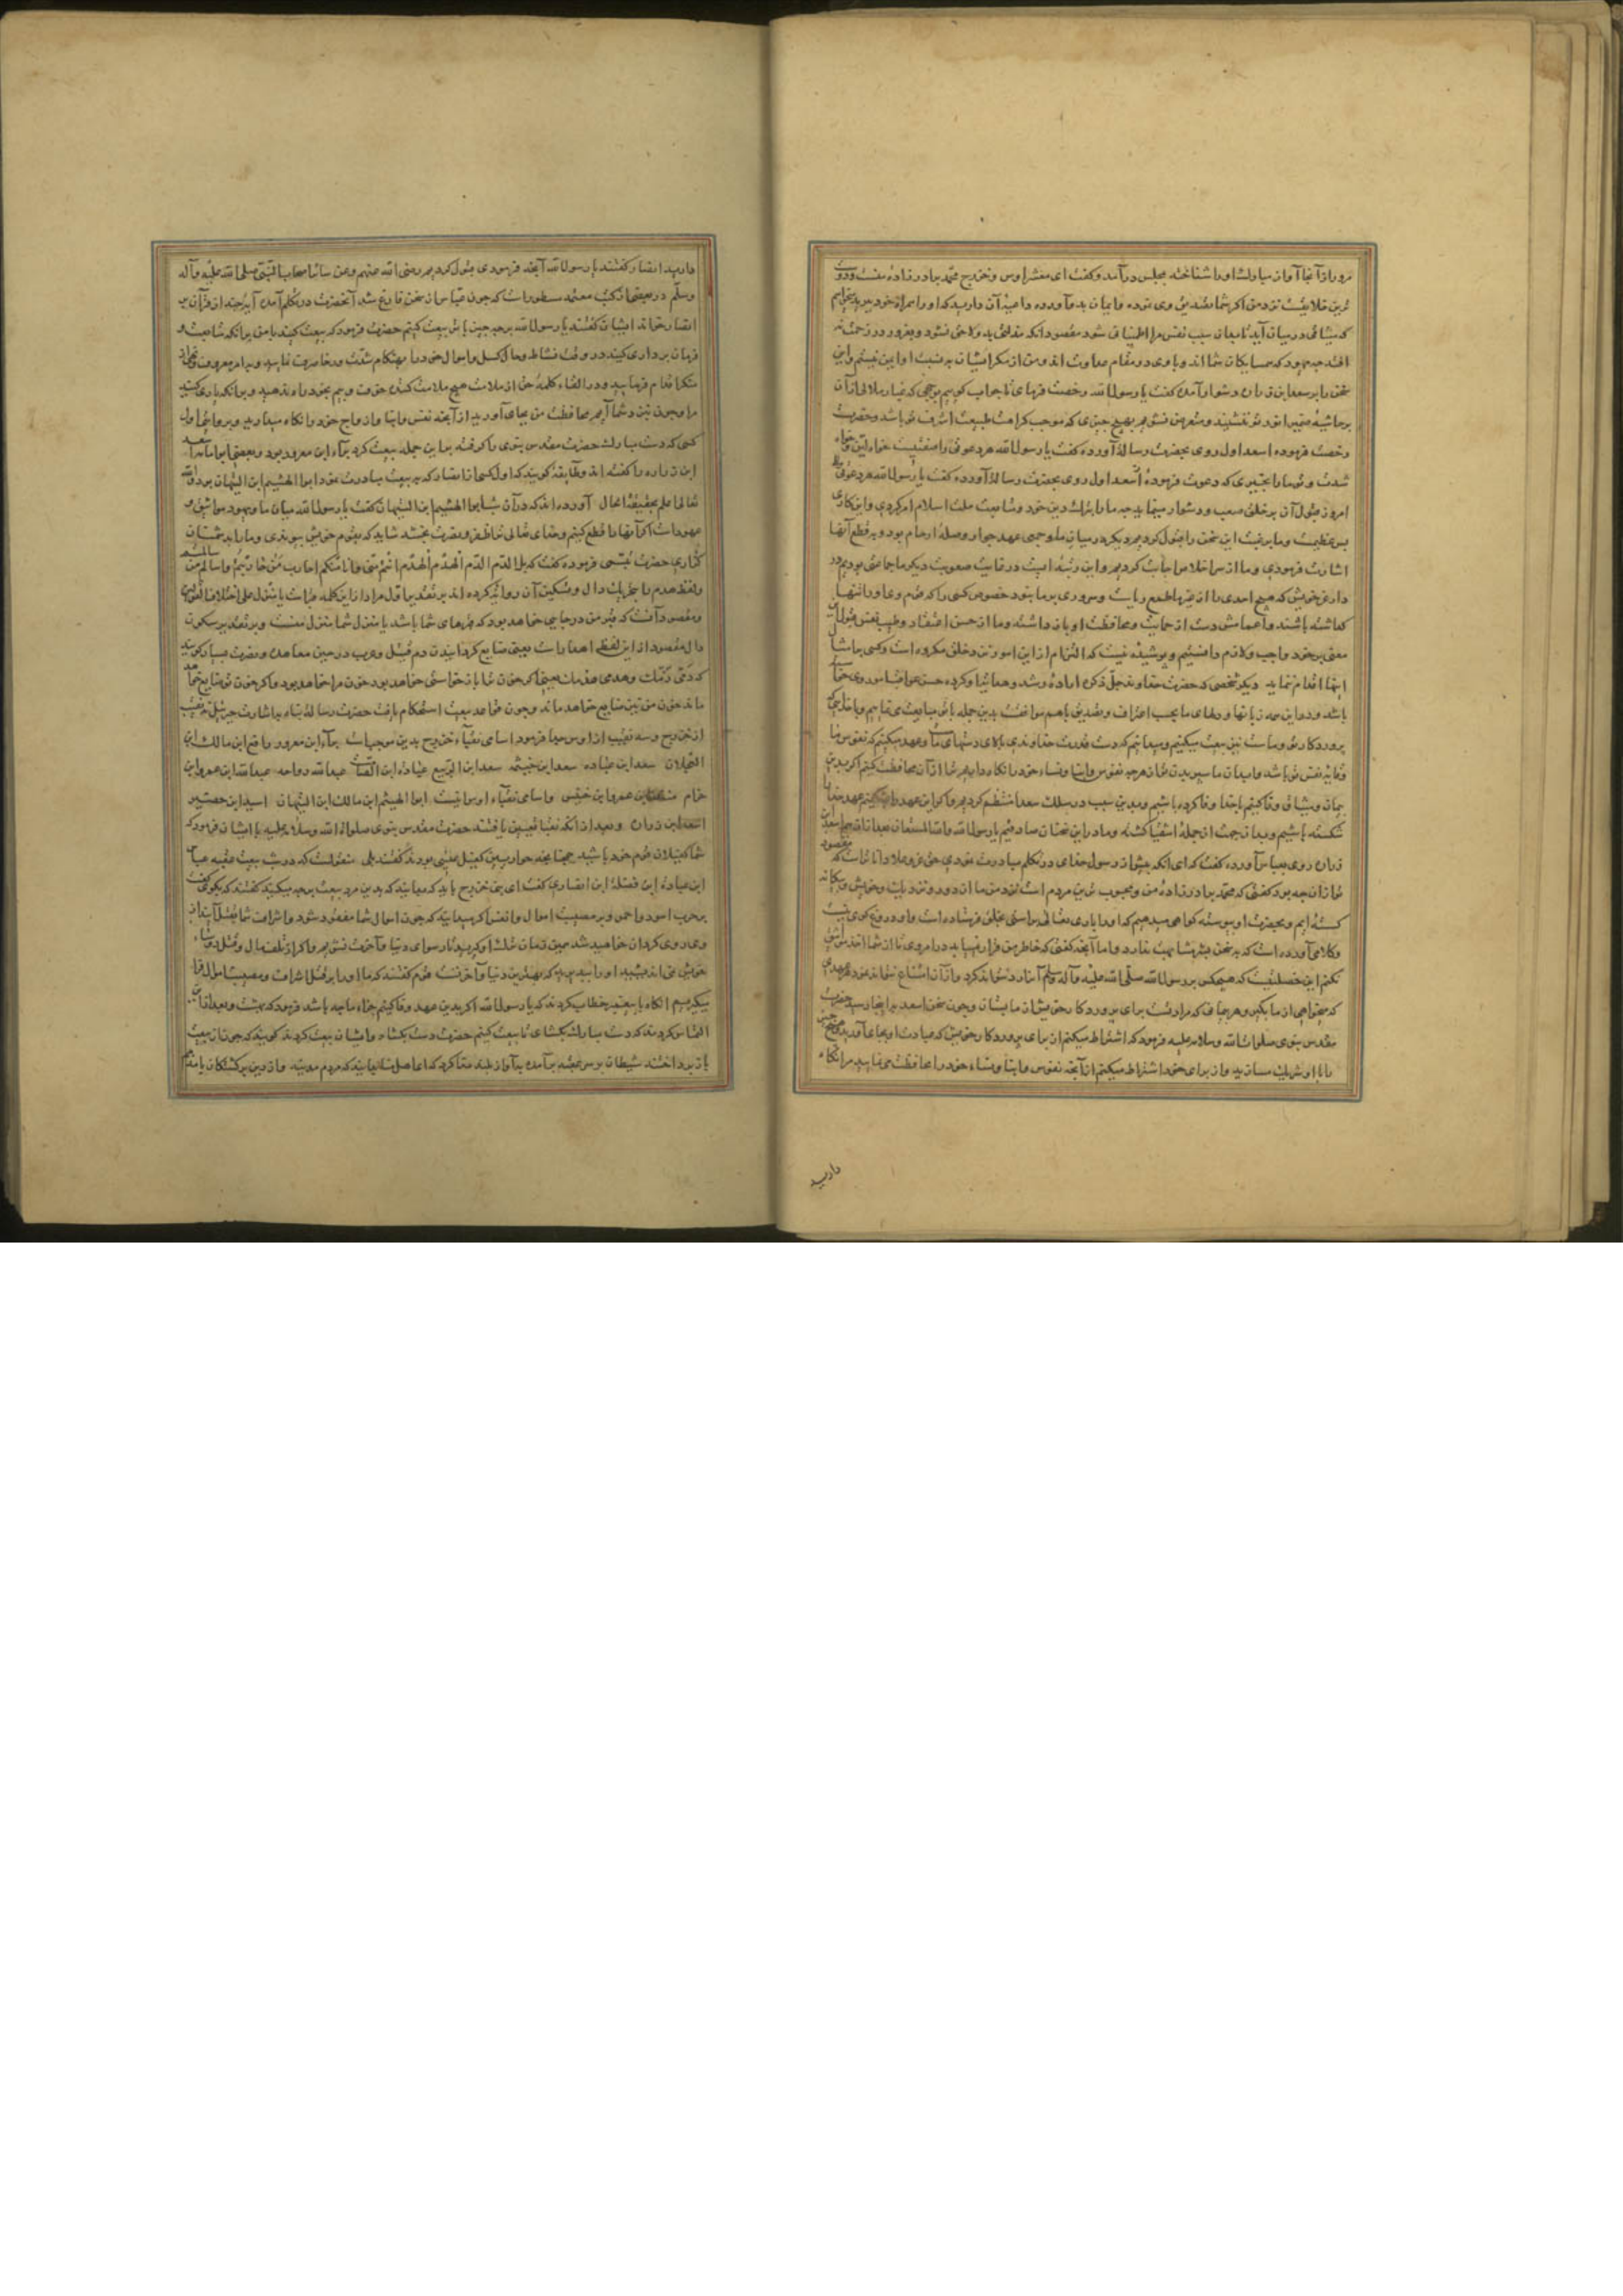 مرو راز آنجا آواز مبارک او را شناخته بمجلس درآمد و گفت ای معشر اوس و خزرج محمد برادرزاده منست و دوست
ترین خلایقست نزد من اگر شما تصدیق وی نموده و ایمان بدو آورده داعیه آن دارید که او را همراه خود ببرید میخواهم
که میثاقی در میان آید تا
سخن را بر سعد ابن زراره دشوار آمده گفت یا رسول الله رخصت فرمای تا جواب گویم بوجهی که غبار ملالی از آن
بر حاشیه ضمیر انور تو ننشیند و متعرض نشویم بهیچ چیزی که موجب کراهت طبیعت اشرف تو باشد و حضرت
رخصت فرموده اسعد اول روی بحضرت رسالة آورده گفت یا رسول الله هر دعوتی را صفتیست خواه لین و خواه
شدت و تو ما را بچیزی که دعوت فرموده
امروز قبول آن بر خلق صعب و دشوار مینماید چه ما را بترک دین خود و متابعت ملت اسلام امر کردی و این کاری
بس عظیمست و ما برغبت این سخن را قبول کردیم دیگر در میان ما و جمعی عهد جوار و صله ارحام بود و به قطع آنها
اشارت فرمودی و ما از سر اخلاص اجابت کردیم و این رتبه ایست در غایت صعوبت دیگر ما جماعتی بودیم در
دار عز خویش که هیچ احدی را از
گذاشته باشند و اعمامش دست از حمایت و محافظت او باز داشته و ما از حسن اعتقاد و طیب نفس قبول این
معنی بر خود واجب و لازم دانستیم و پوشیده نیست که التزام از این امور نزد خلق مکروه است و کسی
اینها اقدام نماید دیگر شخصی که حضرت خداوند جل ذکره اراده رشد
باشد و در این همه زبانها و دلهای ما بحسب اعتراف و تصدیق با هم موافقست بدین جمله با تو مبایعت مینماییم و با خدا
پروردگار تو و ماست نیز بیعت میکنیم و میدانیم که دست قدرت خداوندی بالای دستهای ما و عهد میکنیم که نفوس ما
وقایه نفس تو باشد و ابدان ما سپر بدن تو
پیمان و میثاق وفا کنیم با خدا وفا کرده باشیم و بدین سبب در سلک سعدا منتظم گردیم و اگر این عهد را
شکسته باشیم و بدان جهت از جمله اشقیا گشته و ما در این سخنان صادقیم یا رسول الله والله المستعان بعد از آن اسعد
زراره روی بعباس آورده گفت که ای آنکه
تو از آن چه بود که گفتی که محمد برادرزاده من و محبوب ترین مردم است نزد من ما از دور و نزدیک و خویش و بیگانه
گسسته ایم و بحضرت او پیوسته گواهی میدهیم که او را باری تعالی براستی بخلق فرستاده است و او دروغ گوی نیست
و کلامی آورده است که به سخن بشر مشابهت ندارد و اما آنچه گفتی که خاطر من قرار نمییابد در امر وی تا از شما
نکنم این خصلتیست که هیچکس بر رسول الله صلی الله علیه و آله وسلم
که میخواهی از ما بگیر و هر پیمانی که مراد تست برای پروردگار خویش از ما بستان و چون سخن اسعد بدینجا رسید حضرت
مقدس نبوی صلوات الله و سلامه علیه فرمود که اشتراط میکنم از برای پروردگار خویش که عبادت او بجای آورید و هیچ چیز
را با او شریک مسازید و از برای خود اشتراط میکنم از آنچه نفوس و ابنا و نساء خود را محافظت مینمایید مرا نگاه
دارید
دارید انصار گفتند یا رسول الله آنچه فرمودی قبول کردیم رضی الله عنهم وعن سائر اصحاب النبی صلی الله علیه وآله
وسلم در بعضی از کتب معتمد مسطور است که چون عباس از سخن فارغ شد آنحضرت در تکلم آمده آیه چند از قرآن بر
انصار خواند ایشان گفتند یا رسول الله بر چه چیز با تو بیعت کنیم حضرت فرمود که بیعت کنید با من بر آنکه متابعت و
فرمان برداری کنید در وقت نشاط و حال کسل و اموال خود را بهنگام شدت و رخا صرف نمایید و به امر معروف و نهی از
منکر اقدام فرمایید و در القاء کلمه حق از ملامت هیچ ملامت کننده خوف و بیم بخود راه ندهید و بر آنکه یاری کنید
مرا و چون نزد شما آیم محافظت من بجای آورید از آنچه نفس و ابنا و ازواج خود را نگاه میدارید و بروایتی اول
کسی که دست مبارک حضرت مقدس نبوی را گرفته بر این جمله بیعت کرد براء ابن معرور بود و بعضی ابوامامه اسعد
ابن زراره را گفته اند و طایفه گویند که اول کسی از انصار که به بیعت مبادرت نمود ابوالهیثم ابن التیهان بود والله
تعالی اعلم بحقیقة الحال آورده اند که در آن شب ابوالهیثم ابن التیهان گفت یا رسول الله میان ما و یهود مواثیق و
عهود است اگر آنها را قطع کنیم و خدای تعالی ترا ظفر و نصرت بخشد شاید که بقوم خویش پیوندی و ما را بدشمنان
گذاری حضرت تبسمی فرموده گفت که بل الدم الدم الهدم الهدم انتم منی وانا منکم احارب من حاربتم واسالم من سالمتم
و لفظ هدم را بتحریک دال و تسکین آن روایت کرده اند بر تقدیر اول مراد از این کلمه
و مقصود آنست که قبر من در جایی خواهد بود که قبرهای شما باشد یا منزل شما منزل منست و بر تقدیر سکون
دال مقصود از این لفظ اهدار است یعنی ضایع گردانیدن دم قتیل و عرب در حین معاهده و نصرت
که دمی دمک و هدمی هدمک یعنی اگر خون ترا باز خواستی خواهد بود خون مرا خواهد بود و اگر خون تو ضایع خواهد
ماند خون من نیز ضایع خواهد ماند و چون قواعد بیعت استحکام یافت حضرت رسالة پناه باشارت جبرئیل نه نقیب
از خزرج و سه نقیب از اوس جدا فرمود اسامی نقباء خزرج بدین موجبست براء ابن معرور رافع ابن مالک ابن
العجلان سعد ابن عباده سعد ابن خیثمه سعد ابن الربیع عباده ابن الصامت عبدالله رواحه عبدالله ابن عمرو ابن
حرام منذر ابن عمرو ابن خنیس و اسامی نقباء اوس اینست ابوالهیثم ابن مالک ابن التیهان اسید ابن حضیر
اسعد ابن زراره و بعد از آنکه نقبا تعیین یافتند حضرت مقدس نبوی صلوات الله و سلامه علیه با ایشان فرمود که
شما کفیلان قوم خود باشید همچنانچه حواریین کفیل عیسی بودند گفتند بلی منقولست که در شب بیعت عقبه عباس
ابن عباده ابن فضله ابن انصاری گفت ای بنی خزرج باید که میدانید که بدین مرد بیعت بر چه میکنید گفتند که بگوی گفت
بر حرب اسود و احمر و بر مصیبت اموال و انفس اگر میدانید که چون اموال شما مفقود شود و اشراف شما بقتل آیند از
وی روی گردان خواهید شد همین زمان ترک او گیرید تا رسوای دنیا و آخرت نشویم و اگر از تلف مال و قتل رؤساء
خویش نمی اندیشید او را ببرید که بهترین دنیا و آخرتست قوم گفتند که ما او را بر قتل اشراف و مصیبت اموال فرا
میگیریم آنگاه با پیغمبر خطاب کردند که یا رسول الله اگر بدین عهد وفا کنیم جزاء ما چه باشد فرمود که بهشت و بعد از آن
التماس کردند که دست مبارک بگشای تا بیعت کنیم حضرت دست بگشاد و ایشان بیعت کردند گویند که چون از بیعت
باز پرداختند شیطان بر سر عقبه برآمده بآواز بلند ندا کرد که ای اهل منا بدانید که مردم مدینه و از دین برگشتگان با مذمم